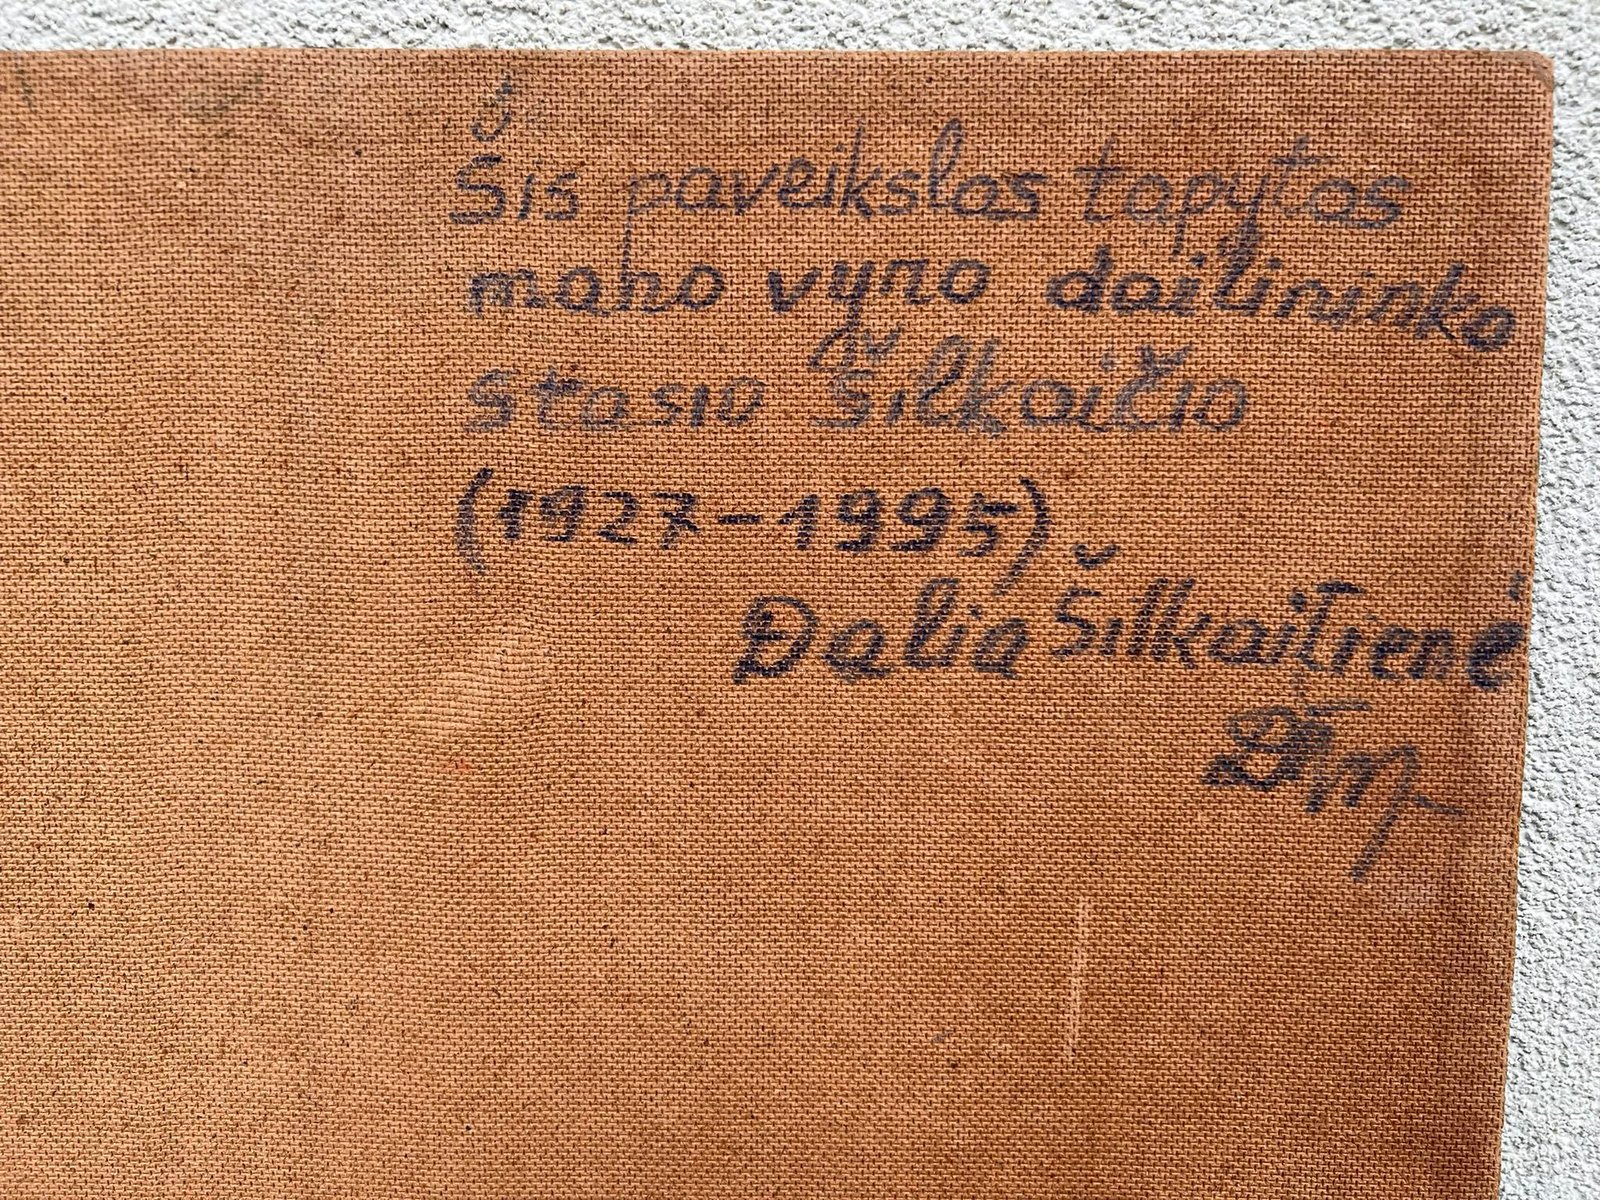 Šis paveikslas tapytas
mano vyro dailininko
Stasio Šilkaičio
(1927-1995)
Dalia Šilkaitienė